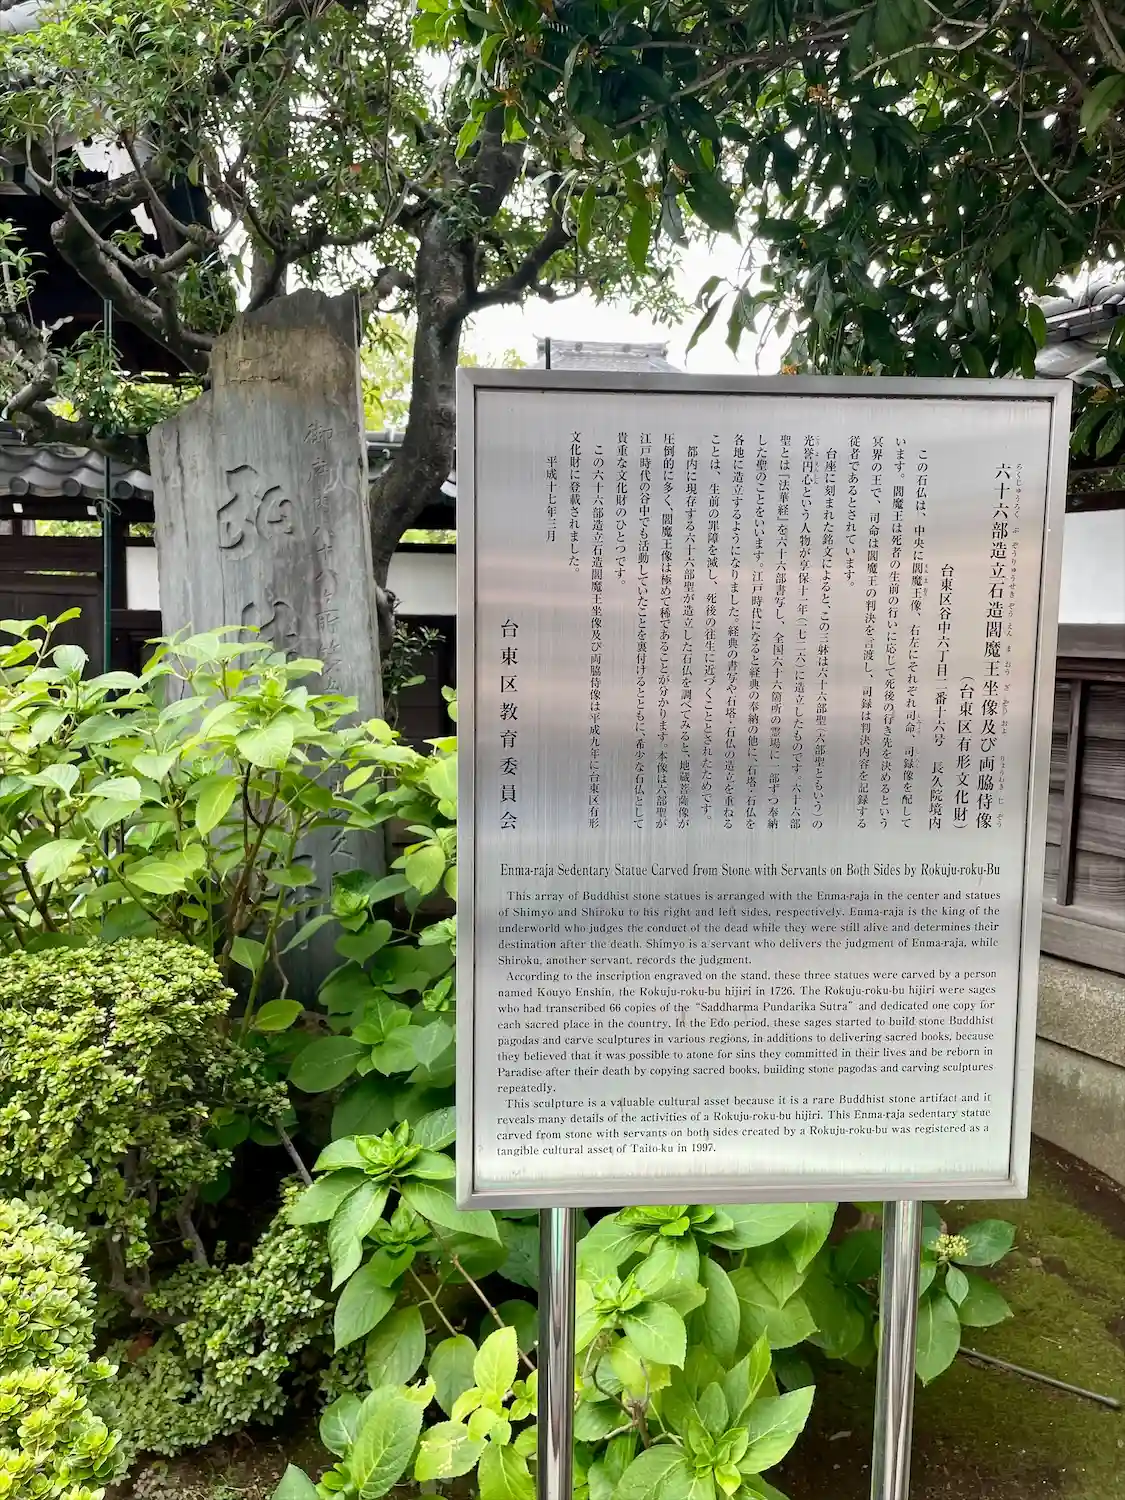 六十六部造立石造閻魔王坐像及び両脇侍像
ろくじゅうろく ぶ ぞうりゅうせきぞう えん ま おう ざ ぞう およ りょうわき じ ぞう
（台東区有形文化財）
台東区谷中六丁目二番十六号　長久院境内
この石仏は、中央に閻魔王像、右左にそれぞれ司命、司録像を配して
います。閻魔王は死者の生前の行いに応じて死後の行き先を決めるという
冥界の王で、司命は閻魔王の判決を言渡し、司録は判決内容を記録する
従者であるとされています。
台座に刻まれた銘文によると、この三躰は六十六部聖（六部聖ともいう）の
光誉円心という人物が享保十一年（一七二六）に造立したものです。六十六部
聖とは『法華経』を六十六部書写し、全国六十六箇所の霊場に一部ずつ奉納
した聖のことをいいます。江戸時代になると経典の奉納の他に、石塔・石仏を
各地に造立するようになりました。経典の書写や石塔・石仏の造立を重ねる
ことは、生前の罪障を滅し、死後の往生に近づくこととされたためです。
都内に現存する六十六部聖が造立した石仏を調べてみると、地蔵菩薩像が
圧倒的に多く、閻魔王像は極めて稀であることが分かります。本像は六部聖が
江戸時代の谷中でも活動していたことを裏付けるとともに、希少な石仏として
貴重な文化財のひとつです。
この六十六部造立石造閻魔王坐像及び両脇侍像は平成九年に台東区有形
文化財に登載されました。
平成十七年三月
台東区教育委員会
Enma-raja Sedentary Statue Carved from Stone with Servants on Both Sides by Rokuju-roku-Bu
This array of Buddhist stone statues is arranged with the Enma-raja in the center and statues
of Shimyo and Shiroku to his right and left sides, respectively. Enma-raja is the king of the
underworld who judges the conduct of the dead while they were still alive and determines their
destination after the death. Shimyo is a servant who delivers the judgment of Enma-raja, while
Shiroku, another servant, records the judgment.
According to the inscription engraved on the stand, these three statues were carved by a person
named Kouyo Enshin, the Rokuju-roku-bu hijiri in 1726. The Rokuju-roku-bu hijiri were sages
who had transcribed 66 copies of the "Saddharma Pundarika Sutra" and dedicated one copy for
each sacred place in the country. In the Edo period, these sages started to build stone Buddhist
pagodas and carve sculptures in various regions, in additions to delivering sacred books, because
they believed that it was possible to atone for sins they committed in their lives and be reborn in
Paradise after their death by copying sacred books, building stone pagodas and carving sculptures
repeatedly.
This sculpture is a valuable cultural asset because it is a rare Buddhist stone artifact and it
reveals many details of the activities of a Rokuju-roku-bu hijiri. This Enma-raja sedentary statue
carved from stone with servants on both sides created by a Rokuju-roku-bu was registered as a
tangible cultural asset of Taito-ku in 1997.